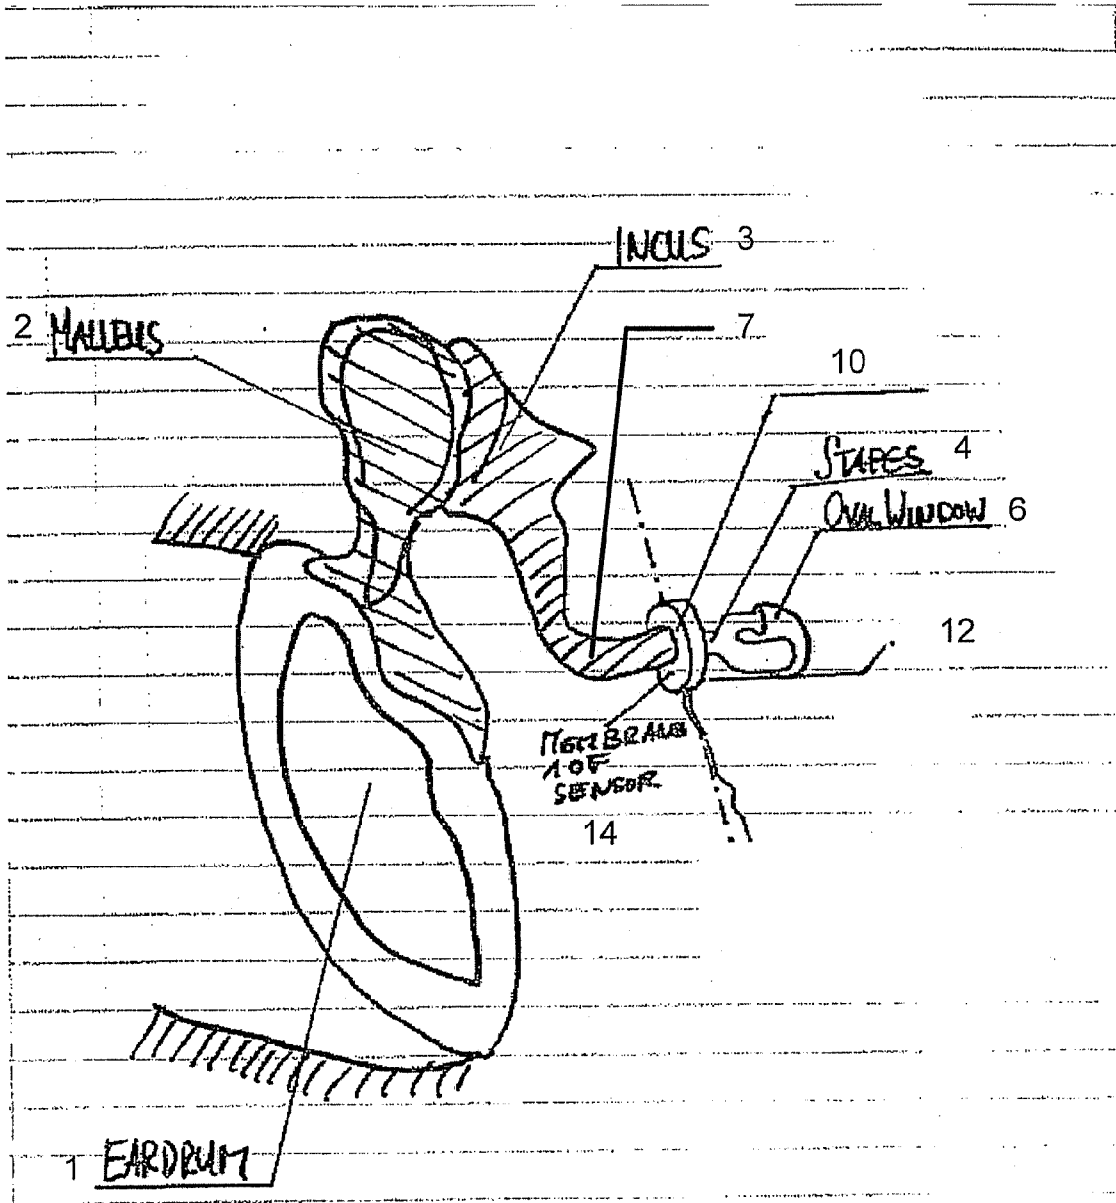 INCUS 3
2 MALLEUS
7
10
STAPES 4
OVAL WINDOW 6
12
MEMBRANE
1 OF
SENSOR
14
1 EARDRUM